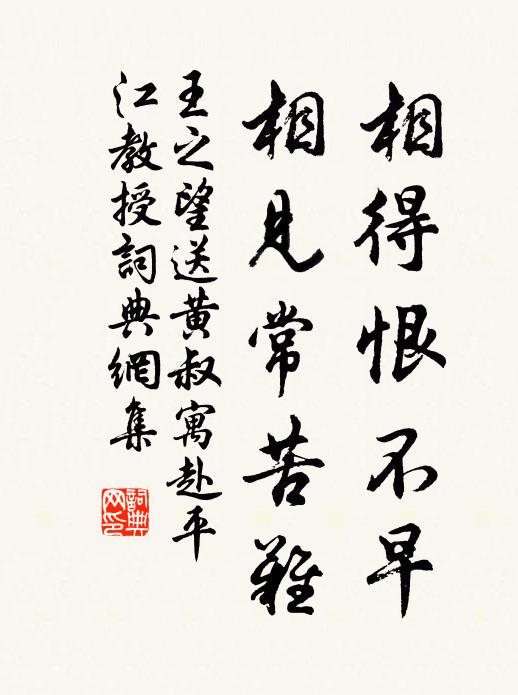 相得恨不早
相見常苦難
王之望送黄叔寓赴平
江教授詞典網集
詞典
网印